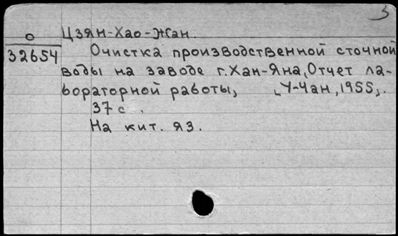 3
О Цзян-Хао-Жан.
32654 Очистка производственной сточной
воды на заводе г. Хан-Яна, Отчет ла-
бораторной работы, [У-Чан, 1955].
37 с.
На кит. яз.